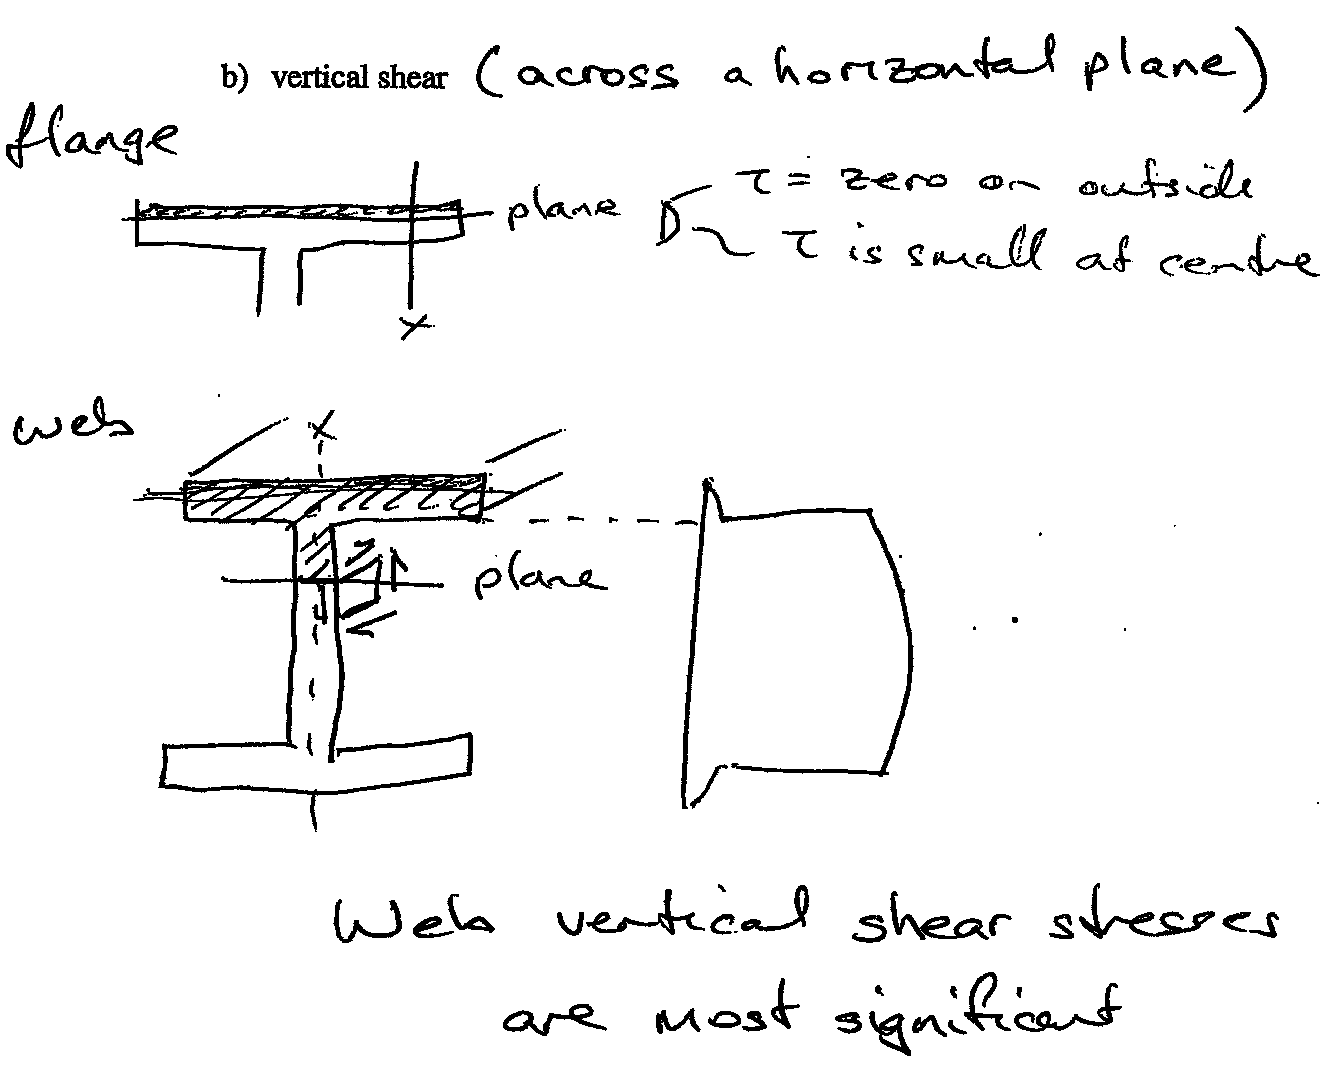 b) vertical shear (across a horizontal plane)
flange
plane
τ = zero on outside
τ is small at centre
x
web
x
plane
Web vertical shear stresses
are most significant